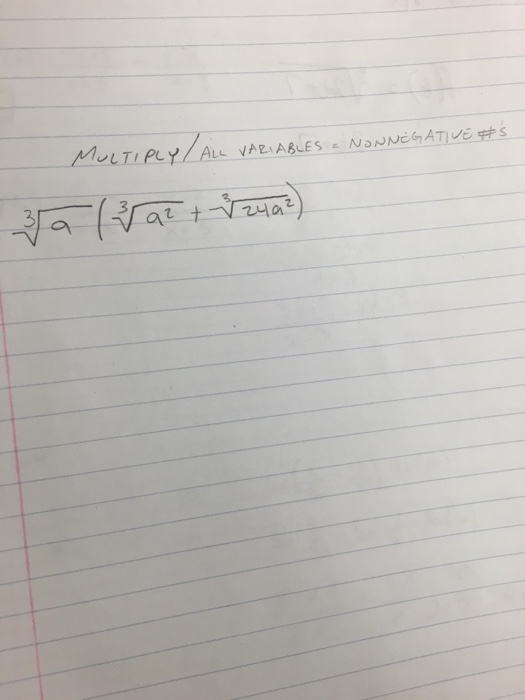 MULTIPLY/ALL VARIABLES = NONNEGATIVE #'S
∛a (∛a² + ∛24a²)